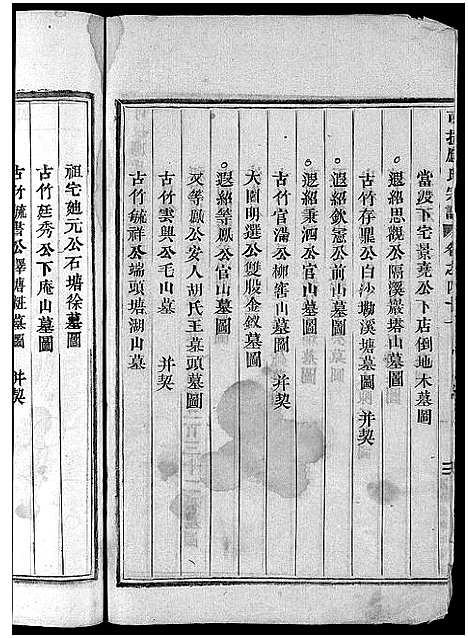 當段下宅景堯公下店倒地木墓圖
遐紹思觀公隔溪巖塔山墓圖
古竹存羆公白沙塝溪塘墓圖 并契
遐紹欽冠公前山墓圖
遐紹秉泗公宅前山墓圖
古竹官滿公柳窖山墓圖 并契
大園明選公雙股金釵墓圖
遐紹等鳳公官山墓圖
文等勵公安人胡氏王墓頭墓圖
古竹雲興公毛山墓 并契
古竹毓祥公端頭塘湖山墓
祖宅廸元公石塘徐墓圖
古竹廷秀公下庵山墓圖